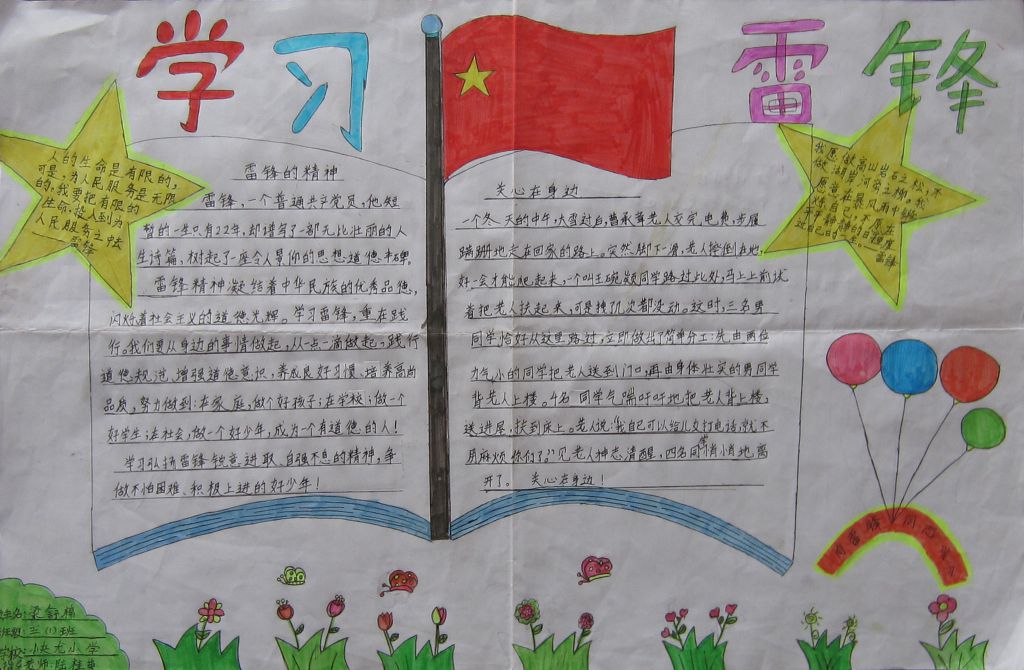 学习雷锋
人的生命是有限的,
可是,为人民服务是无限
的,我要把有限的
生命,投入到为
人民服务之中去
——雷锋
雷锋的精神
雷锋,一个普通共产党员,他短
暂的一生只有22年,却谱写了一部无比壮丽的人
生诗篇,树起了一座令人景仰的思想道德丰碑。
雷锋精神凝结着中华民族的优秀品德,
闪烁着社会主义的道德光辉。学习雷锋,重在践
行。我们要从身边的事情做起,从一点一滴做起,践行
道德规范,增强道德意识,养成良好习惯,培养高尚
品质,努力做到:在家庭,做个好孩子;在学校;做一个
好学生;在社会,做一个好少年,成为一个有道德的人!
学习弘扬雷锋锐意进取、自强不息的精神,争
做不怕困难、积极上进的好少年!
关心在身边
一个冬天的中午,大雪过后,曹承尊老人交完电费,步履
蹒跚地走在回家的路上。突然脚下一滑,老人摔倒在地,
好一会才能爬起来,一个叫王琬凝同学路过此处,马上上前试
着把老人扶起来,可是拽几次都没动。这时,三名男
同学恰好从这里路过,立即做出了简单分工:先由两位
力气小的同学把老人送到门口,再由身体壮实的男同学
背老人上楼。4名同学气喘吁吁地把老人背上楼,
送进屋,扶到床上。老人说:“我自己可以给儿女打电话,就不
用麻烦你们了。”见老人神志清醒,四名同学悄悄地离
开了。 关心在身边!
我愿做高山岩石之松,不
做湖岸河旁之柳。我
愿意在暴风雨中锻
炼自己,不愿在
平平静静的日子里度
过自己的一生。——
雷锋
向雷锋同志学习
姓名:梁舒婵
班级:三(1)班
学校:小央尤小学